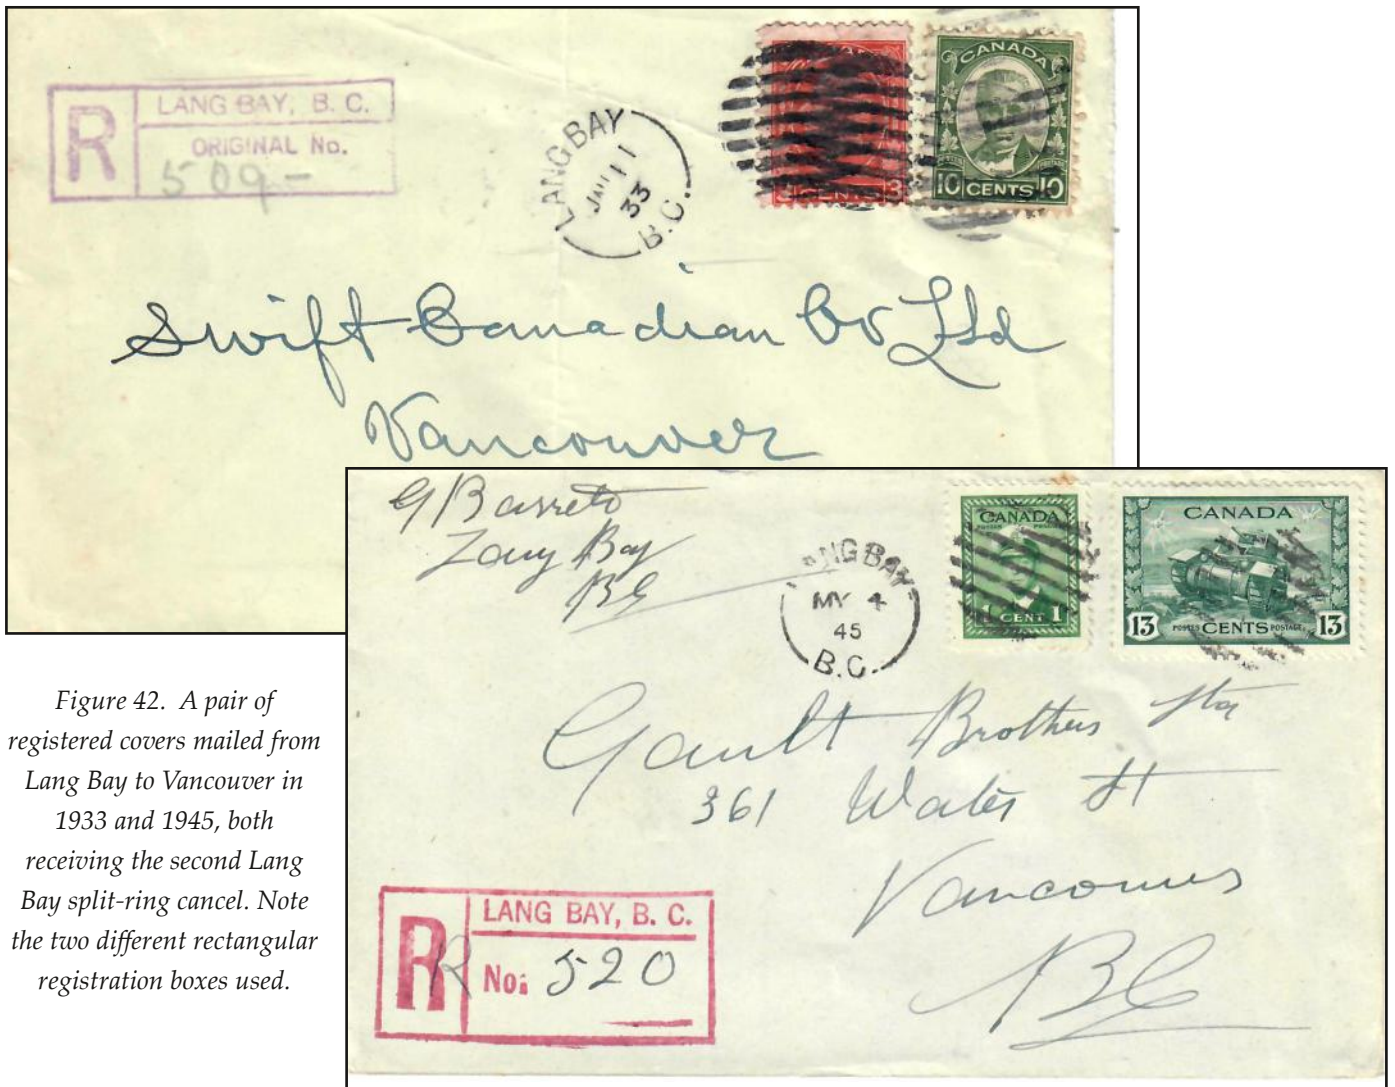 R
LANG BAY, B. C.
ORIGINAL No.
509-
LANG BAY
JAN 11
33
B.C.
3
CANADA
10 CENTS 10
Swift Canadian Co Ltd
Vancouver
G Barreto
Lang Bay
BC
LANG BAY
MY 4
45
B.C.
CANADA
1 CENT 1
CANADA
13 POSTES CENTS POSTAGE 13
Gault Brothers
361 Water St
Vancouver
BC
R
R
LANG BAY, B. C.
No. 520
Figure 42. A pair of
registered covers mailed from
Lang Bay to Vancouver in
1933 and 1945, both
receiving the second Lang
Bay split-ring cancel. Note
the two different rectangular
registration boxes used.